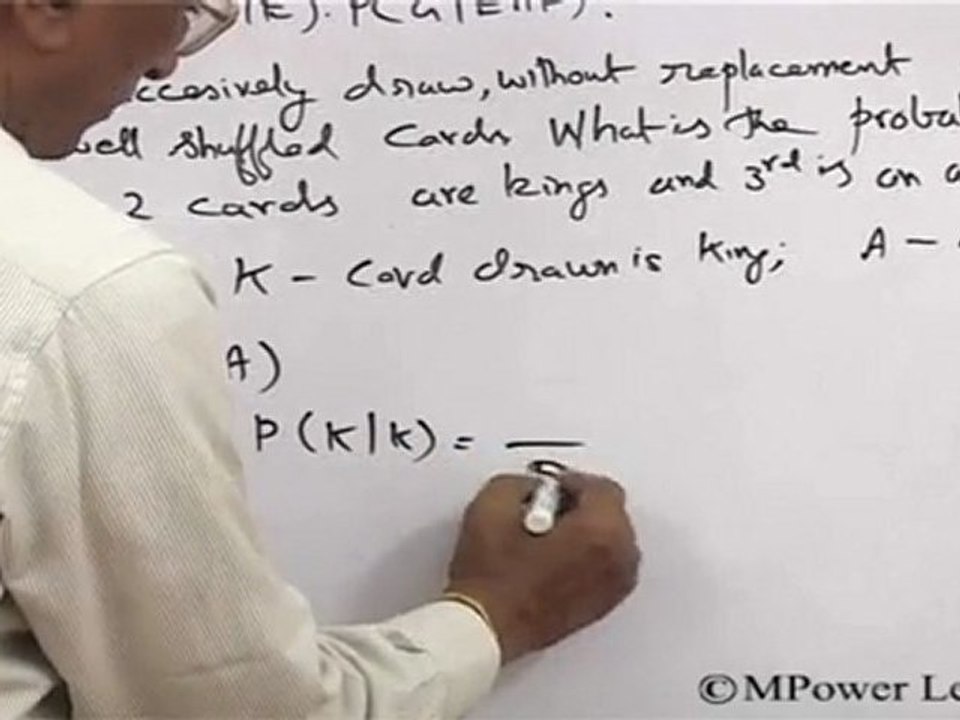 P(G|E∩F).
ccesively draw, without replacement
well shuffled Cards What is the proba
2 cards are kings and 3rd is on a
K - Card drawn is King; A -
A)
P(K|K) =
©MPower Le